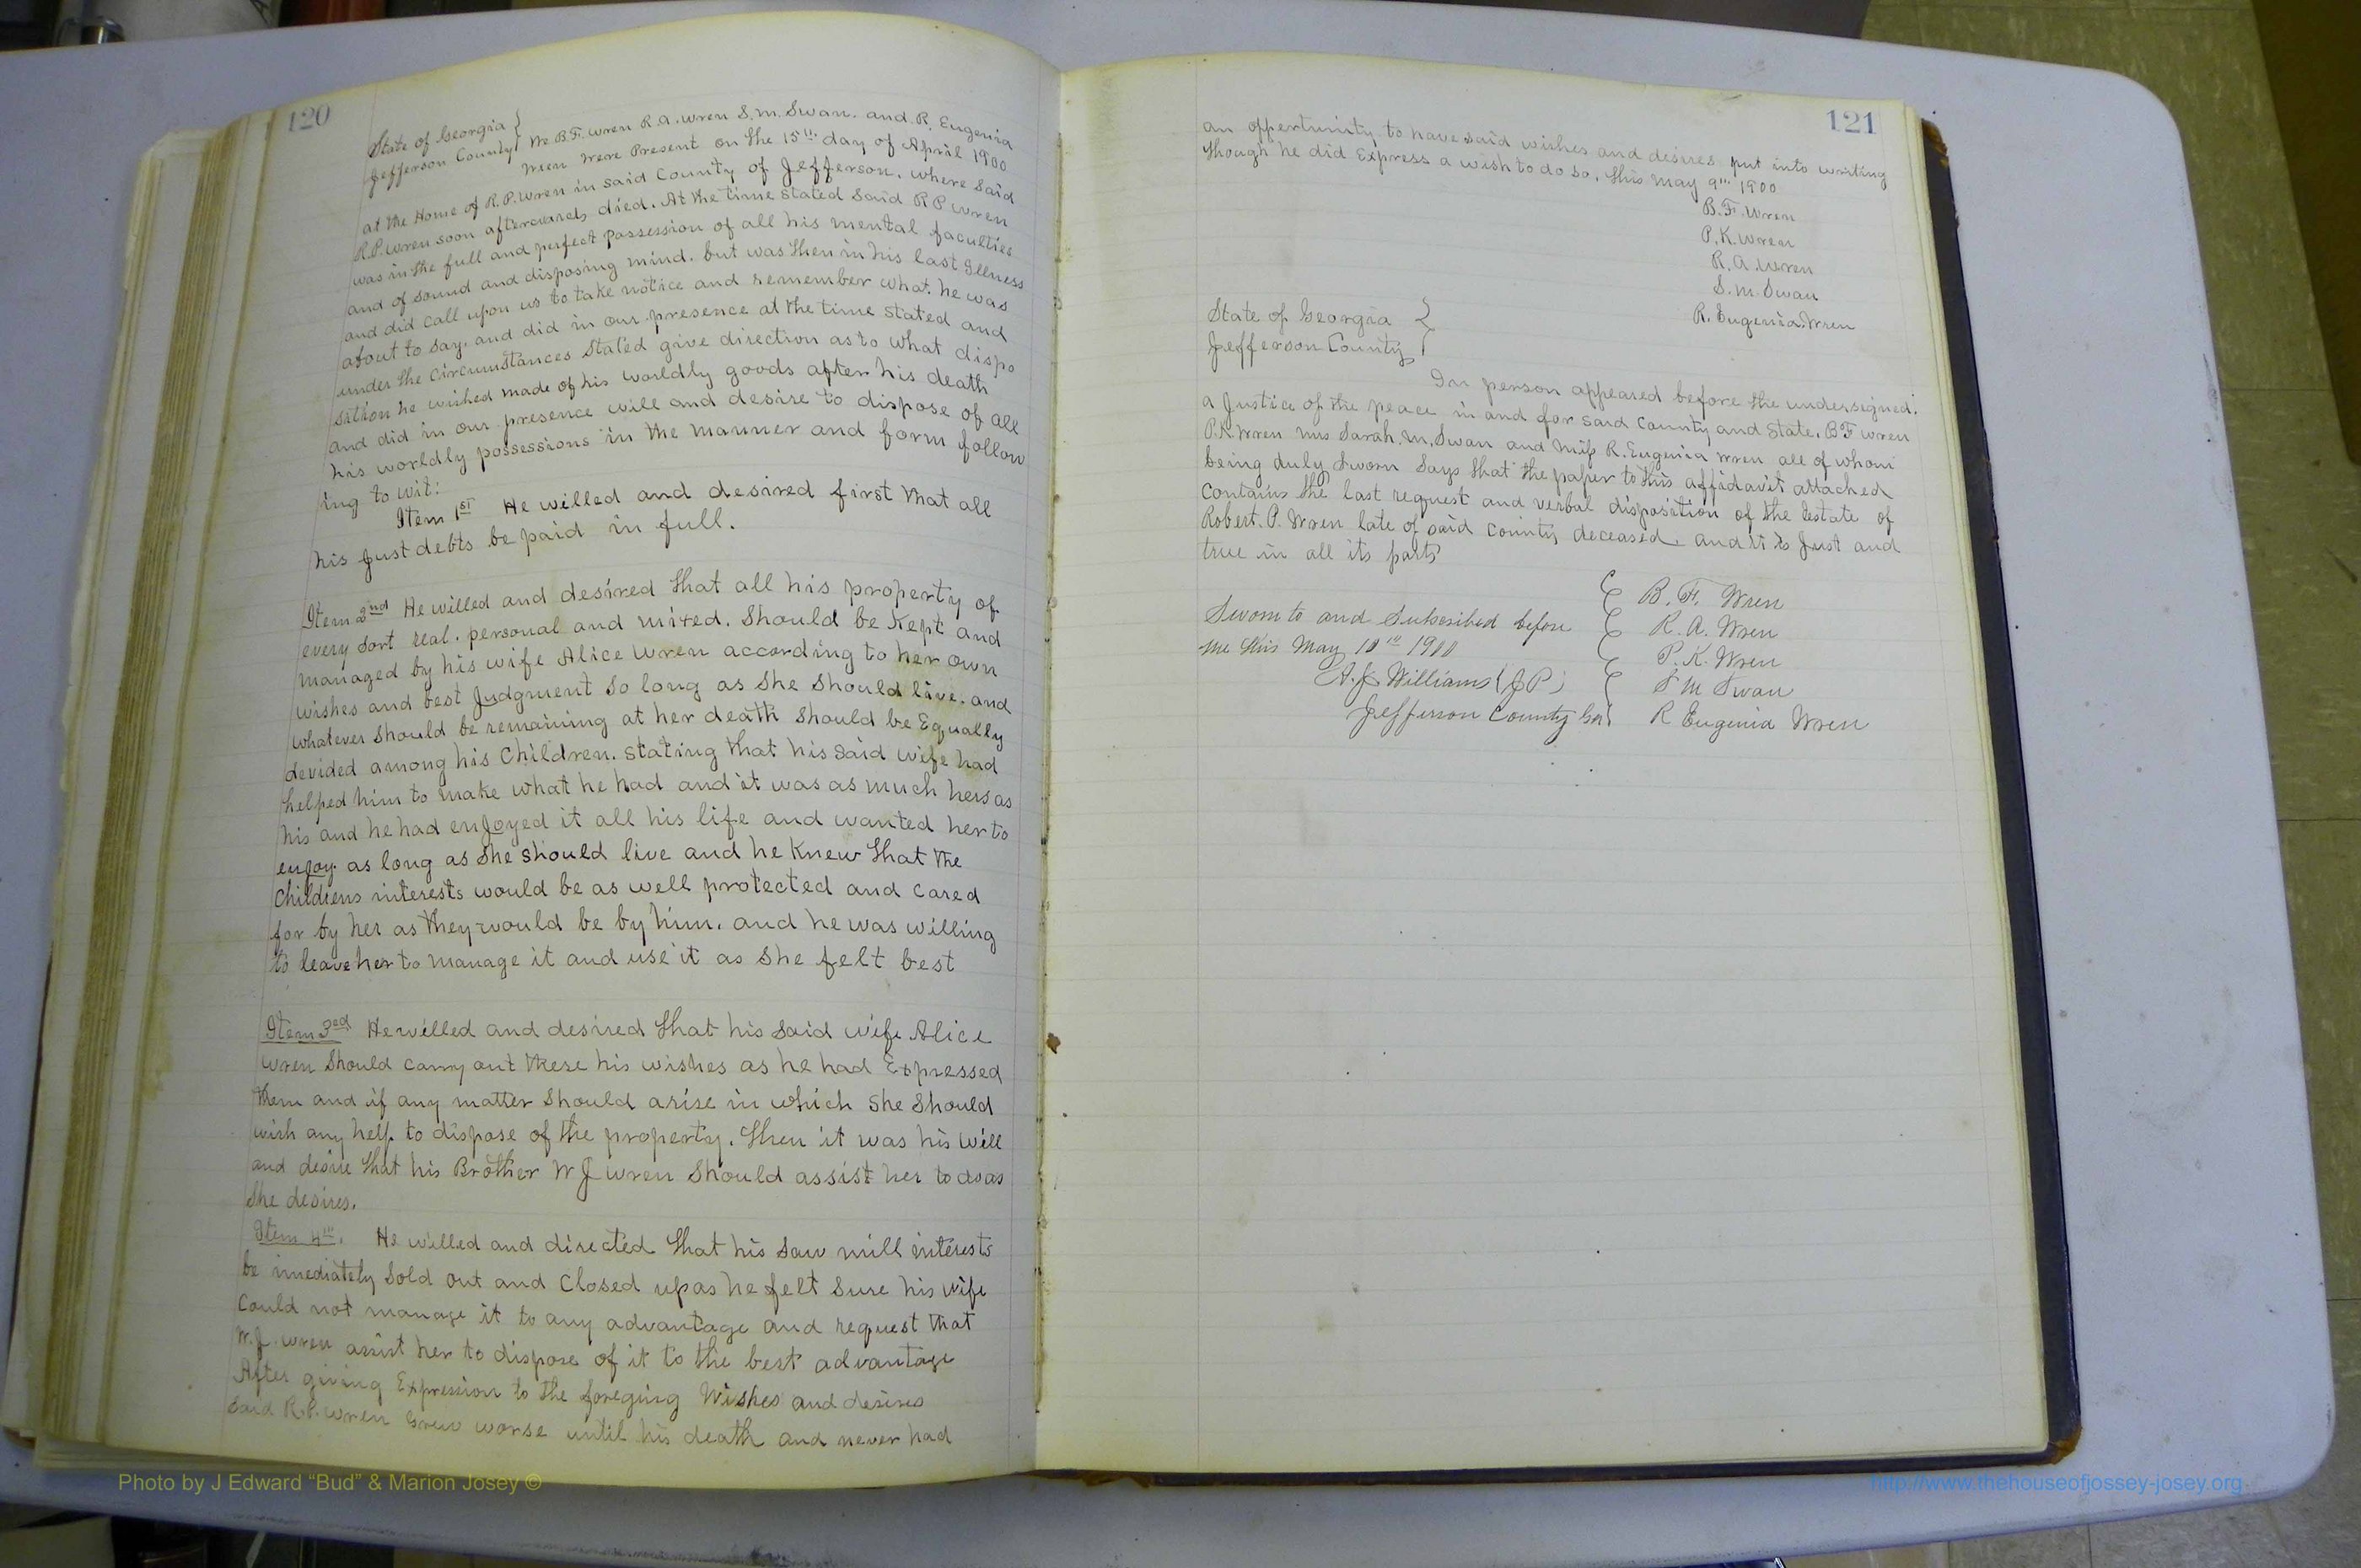 120
State of Georgia }
Jefferson County } We B.F. Wren R.A. Wren S.M. Swan. and R. Eugenia
Wren were Present on the 15th day of April 1900
at the Home of R.P. Wren in said County of Jefferson. where said
R.P. Wren soon afterwards died. At the time stated said R P Wren
was in the full and perfect possession of all his mental faculties
and of sound and disposing mind. but was then in his last Illness
and did call upon us to take notice and remember what he was
about to say. and did in our presence at the time stated and
under the circumstances stated give direction as to what dispo
sition he wished made of his worldly goods after his death
and did in our presence will and desire to dispose of all
his worldly possessions in the manner and form follow
ing to wit:
Item 1st He willed and desired first that all
his just debts be paid in full.
Item 2nd He willed and desired that all his property of
every sort real. personal and mixed. should be kept and
managed by his wife Alice Wren according to her own
wishes and best Judgment so long as she should live. and
whatever should be remaining at her death should be Equally
devided among his Children. stating that his said wife had
helped him to make what he had and it was as much hers as
his and he had enjoyed it all his life and wanted her to
enjoy as long as she should live and he knew that the
Childrens interests would be as well protected and cared
for by her as they would be by him. and he was willing
to leave her to manage it and use it as she felt best
Item 3ed He willed and desired that his said wife Alice
Wren should carry out these his wishes as he had Expressed
them and if any matter should arise in which she should
wish any help to dispose of the property. then it was his will
and desire that his Brother W J Wren should assist her to do as
she desires.
Item 4th. He willed and directed that his saw mill interests
be imediately sold out and closed up as he felt sure his wife
could not manage it to any advantage and request that
W.J. Wren assist her to dispose of it to the best advantage
After giving Expression to the foreging Wishes and desires
said R.P. Wren grew worse until his death and never had
121
an oppertunity to have said wishes and desires put into writing
though he did Express a wish to do so, this May 9th 1900
B.F. Wren
P.K. Wren
R.A. Wren
S.M. Swan
R. Eugenia Wren
State of Georgia }
Jefferson County }
In person appeared before the undersigned.
a Justice of the peace in and for said County and State. B F Wren
P.K Wren Mrs Sarah. M. Swan and Miss R. Eugenia Wren all of whom
being duly sworn says that the paper to this affidavit attached
contains the last request and verbal disposition of the Estate of
Robert. P. Wren late of said County deceased and it is Just and
true in all its parts
Sworn to and Subscribed before
me this May 10th 1900
A.J. Williams (JP)
Jefferson County Ga
B. F. Wren
R. A. Wren
P. K. Wren
S M Swan
R Eugenia Wren
Photo by J Edward “Bud” & Marion Josey ©
http://www.thehouseofjossey-josey.org